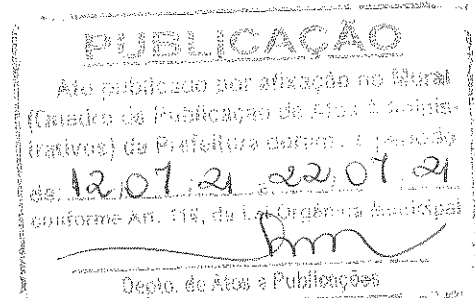 PUBLICAÇÃO
Ato publicado por afixação no Mural
(Quadro de Publicação de Atos Adminis-
trativos) da Prefeitura durante o período
de: 12 07 21 a: 22 07 21
conforme Art. 116, da Lei Orgânica Municipal
Depto. de Atos e Publicações